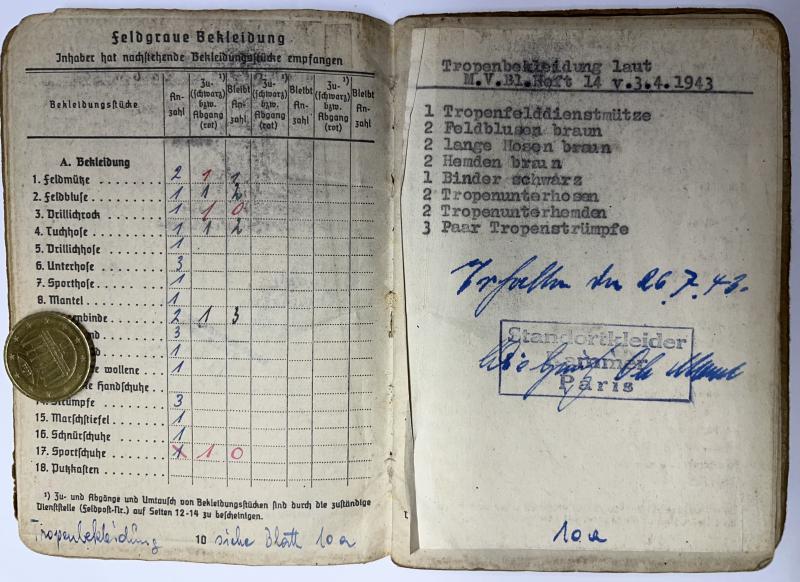 Feldgraue Bekleidung
Inhaber hat nachstehende Bekleidungsstücke empfangen
Bekleidungsstücke An-zahl Zu- (schwarz) bzw. Abgang (rot) ¹) Bleibt An-zahl Zu- (schwarz) bzw. Abgang (rot) ¹) Bleibt An-zahl Zu- (schwarz) bzw. Abgang (rot) ¹) Bleibt An-zahl
A. Bekleidung
1. Feldmütze 2 1 1
2. Feldbluse 1 1 2
3. Drillichrock 1 1 0
4. Tuchhose 1 1 2
5. Drillichhose 1
6. Unterhose 3
7. Sporthose 1
8. Mantel 1
enbinde 2 1 3
nd 3
d 1
e wollene 1
e Handschuhe
14. Strümpfe 3
15. Marschstiefel 1
16. Schnürschuhe 1
17. Sportschuhe 1 1 0
18. Putzkasten
¹) Zu- und Abgänge und Umtausch von Bekleidungsstücken sind durch die zuständige
Dienststelle (Feldpost-Nr.) auf Seiten 12-14 zu bescheinigen.
Tropenbekleidung 10 siehe Blatt 10a
Tropenbekleidung laut
M.V.Bl.Heft 14 v.3.4.1943
1 Tropenfelddienstmütze
2 Feldblusen braun
2 lange Hosen braun
2 Hemden braun
1 Binder schwarz
2 Tropenunterhosen
2 Tropenunterhemden
3 Paar Tropenstrümpfe
Erhalten den 26.7.43.
Standortkleider
kammer
Paris
1
10a